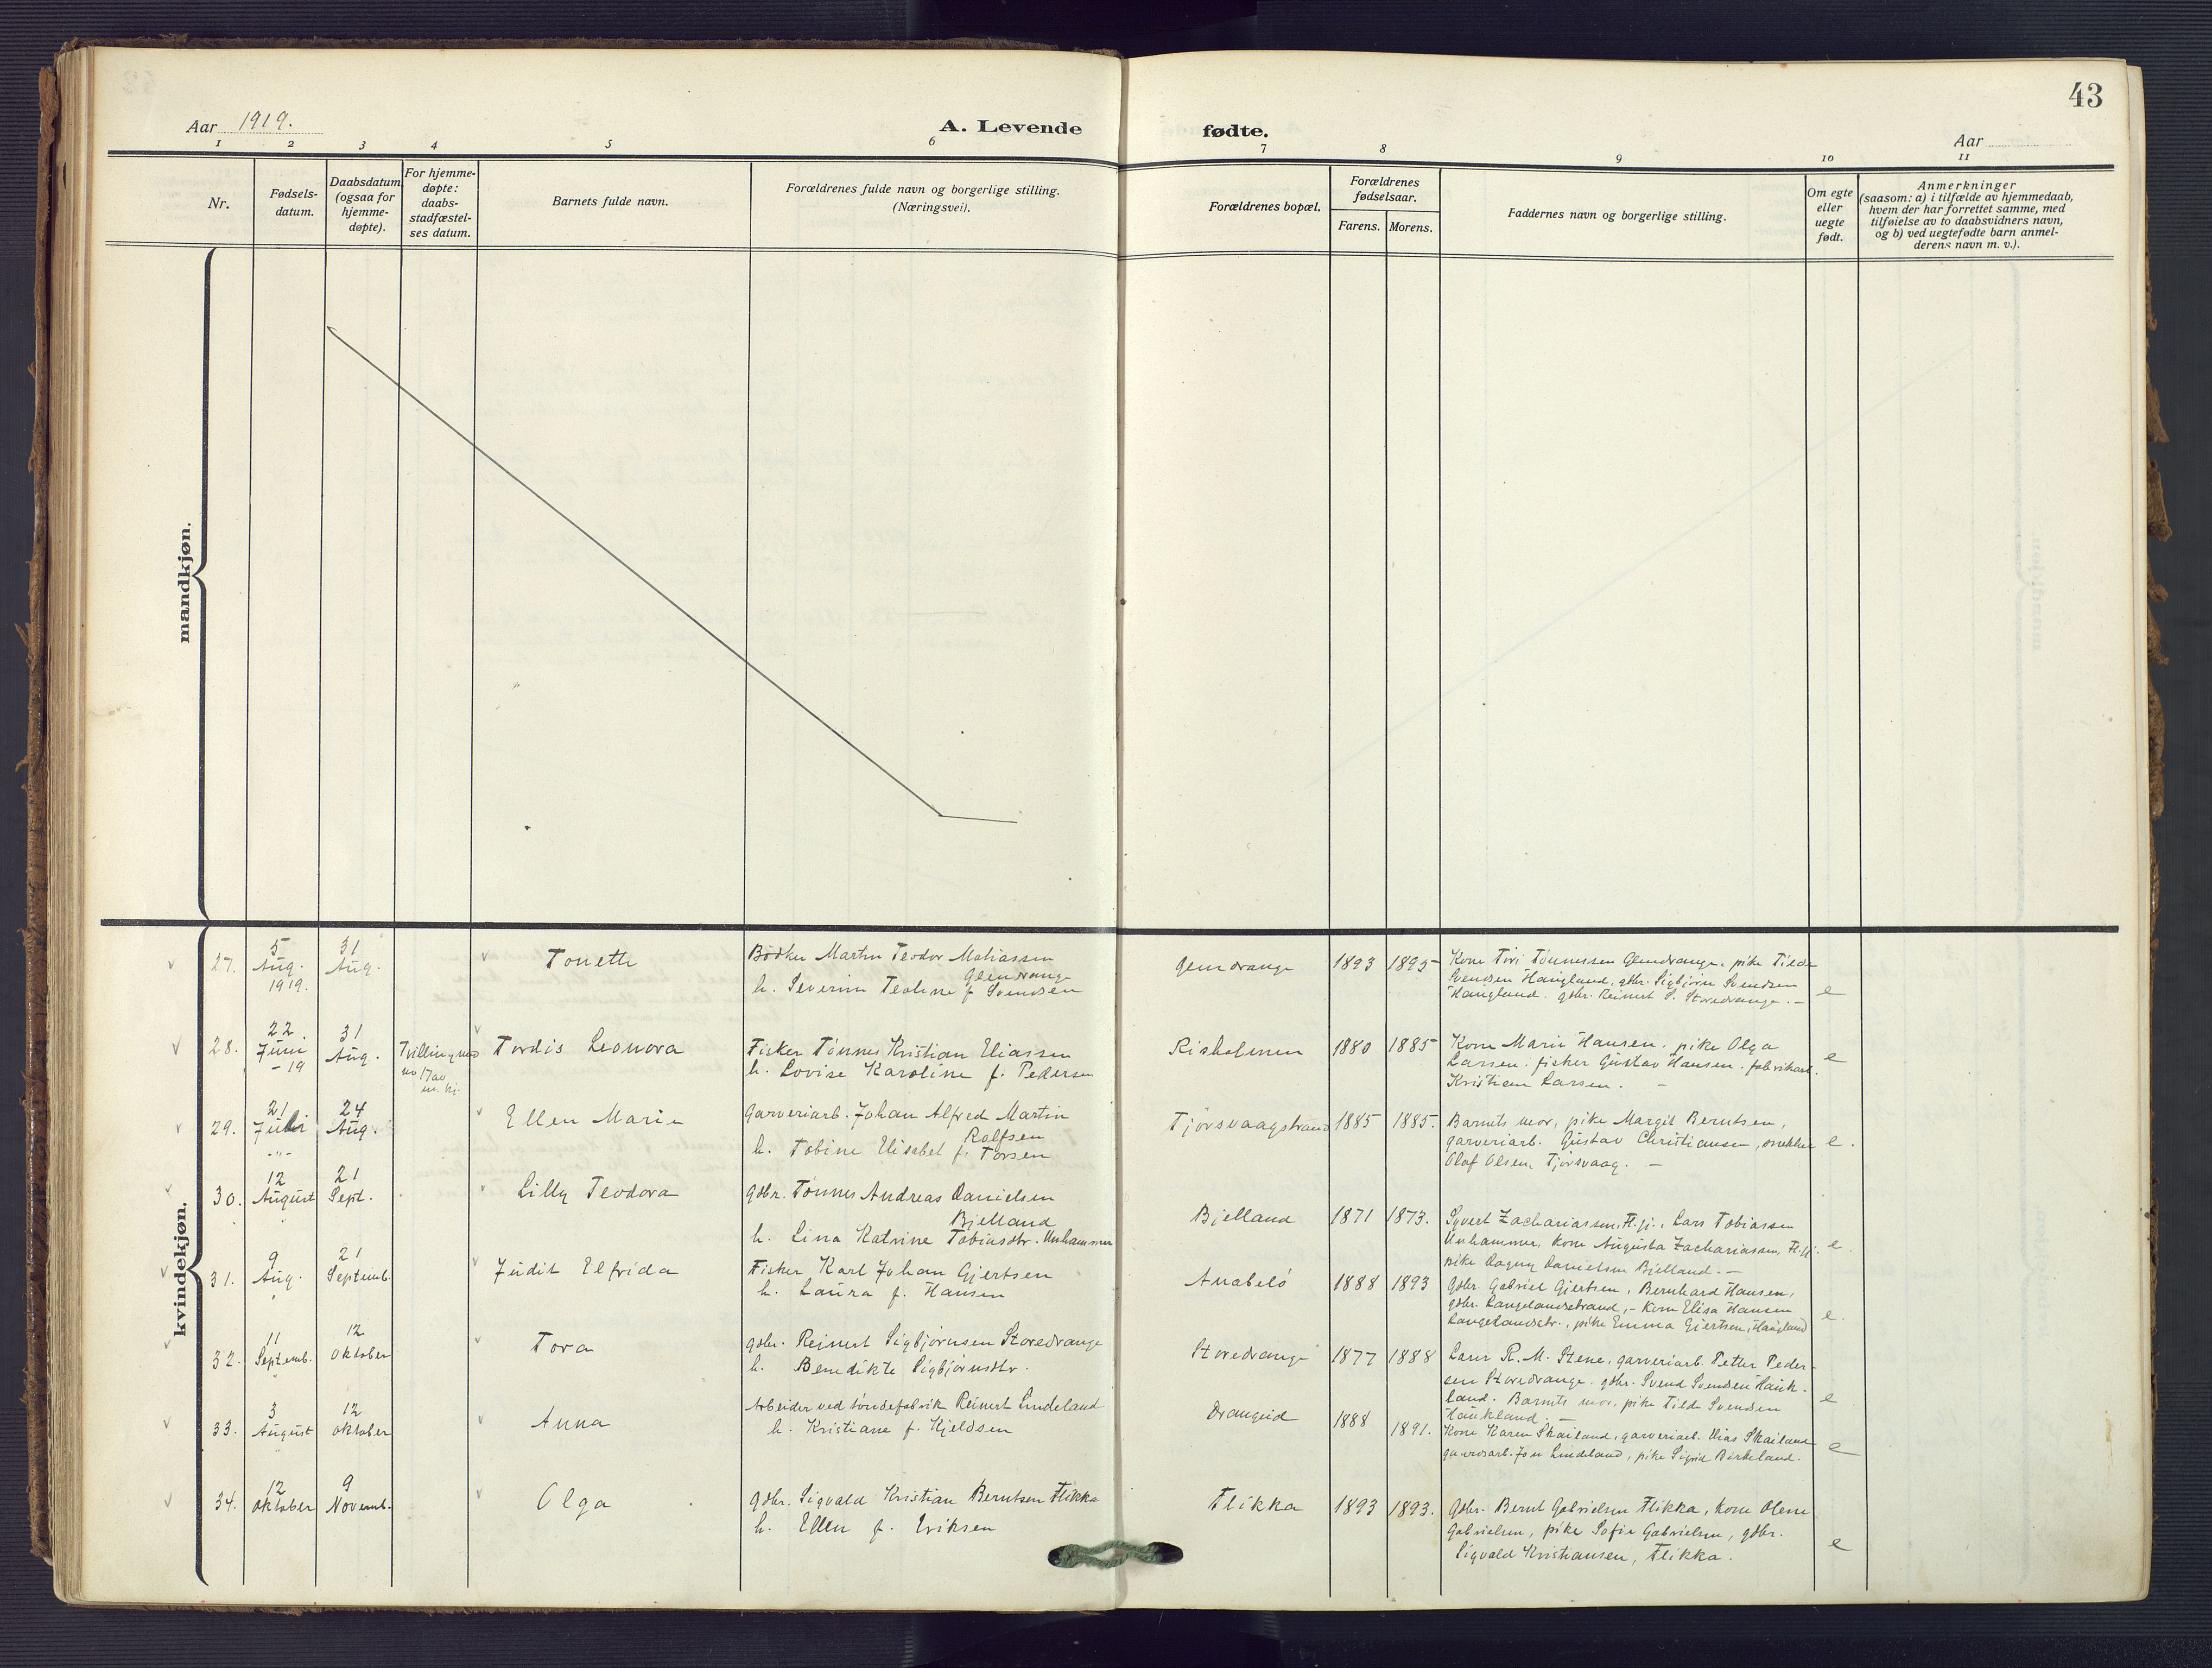 43
Aar 1919.
A. Levende fødte.
Aar
1 2 3 4 5 6 7 8 9 10 11
Nr.
Fødsels-
datum.
Daabsdatum
(ogsaa for
hjemme-
døpte).
For hjemme-
døpte:
daabs-
stadfæstel-
ses datum.
Barnets fulde navn.
Forældrenes fulde navn og borgerlige stilling.
(Næringsvei).
Forældrenes bopæl.
Forældrenes
fødselsaar.
Farens. Morens.
Faddernes navn og borgerlige stilling.
Om egte
eller
uegte
født.
Anmerkninger
(saasom: a) i tilfælde av hjemmedaab,
hvem der har forrettet samme, med
tilføielse av to daabsvidners navn,
og b) ved uegtefødte barn anmel-
derens navn m. v.).
mandkjøn.
kvindekjøn.
27.
5
Aug.
1919.
31
Aug.
Tonette
Bødker Martin Teodor Matiassen
Glendrange
h. Severine Teoline f. Svendsen
Glendrange
1893
1895
Kone Tori Tønnessen Glendrange, pike Tilda
Svendsen Haugland, gbr. Sigbjørn Svendsen
Haugland. gbr. Reinert S. Storedrange. –
e
28.
22
Juni
– 19
31
Aug.
Tvilling med
no 17 av
m. kj.
Tordis Leonora
Fisker Tønnes Kristian Eliassen
h. Lovise Karoline f. Pedersen
Risholmen
1880
1885
Kone Marie Hansen, pike Olga
Larsen, fisker Gustav Hansen, fabrikarb.
Kristian Larsen. –
e
29.
21
Juli
-"-
24
Aug.
Ellen Marie
Garveriarb. Johan Alfred Martin
Rolfsen
h. Tobine Elisabet f. Torsen
Tjørsvaagstrand
1885
1885.
Barnets mor, pike Margit Berntsen,
garveriarb. Gustav Christiansen, snekker
Olaf Olsen Tjørsvaag. –
e.
30.
12
August
21
Sept.
Lilly Teodora
gbr. Tønnes Andreas Danielsen
Bjelland
h. Lina Katrine Tobiasdtr. Unhammer
Bjelland
1871
1873.
Syvert Zachariassen, Fl.fj., Lars Tobiassen
Unhammer, kone Augusta Zachariassen, Fl.fj.
pike Dagny Danielsen Bjelland. –
e.
31.
9
Aug.
21
Septemb.
Judit Elfrida
Fisker Karl Johan Gjertsen
h. Laura f. Hansen
Anabelö
1888
1893
Gbr. Gabriel Gjertsen, Bernhard Hansen,
gbr. Langelandsstrand, – kone Elisa Hansen
Langelandsstr., pike Emma Gjertsen, Haugland
e.
32.
11
Septemb.
12
Oktober
Tora
gbr. Reinert Sigbjørnsen Storedrange
h. Benedikte Sigbjørnsdtr.
Storedrange
1877
1888
Laur R. M. Stene, garveriarb. Petter Peder-
sen Storedrange, gbr. Svend Svendsen Hauk-
land. Barnets mor, pike Tilda Svendsen
Haukland. –
e
33.
3
August
12
Oktober
Anna
Arbeider ved tøndefabrik Reinert Lindeland
h. Kristiane f. Kjeldsen
Drangeid
1888
1891.
Kone Karen Skailand, garveriarb. Elias Skailand
garveriarb. Jon Lindeland, pike Sigrid Birkeland.
e
34.
12
Oktober
9
Novemb.
Olga
gbr. Sigvald Kristian Berntsen Flikka
h. Ellen f. Eriksen
Flikka
1893
1893.
Gbr. Bernt Gabrielsen Flikka, kone Olene
Gabrielsen, pike Sofie Gabrielsen, gbr.
Sigvald Kristiansen, Flikka.
e